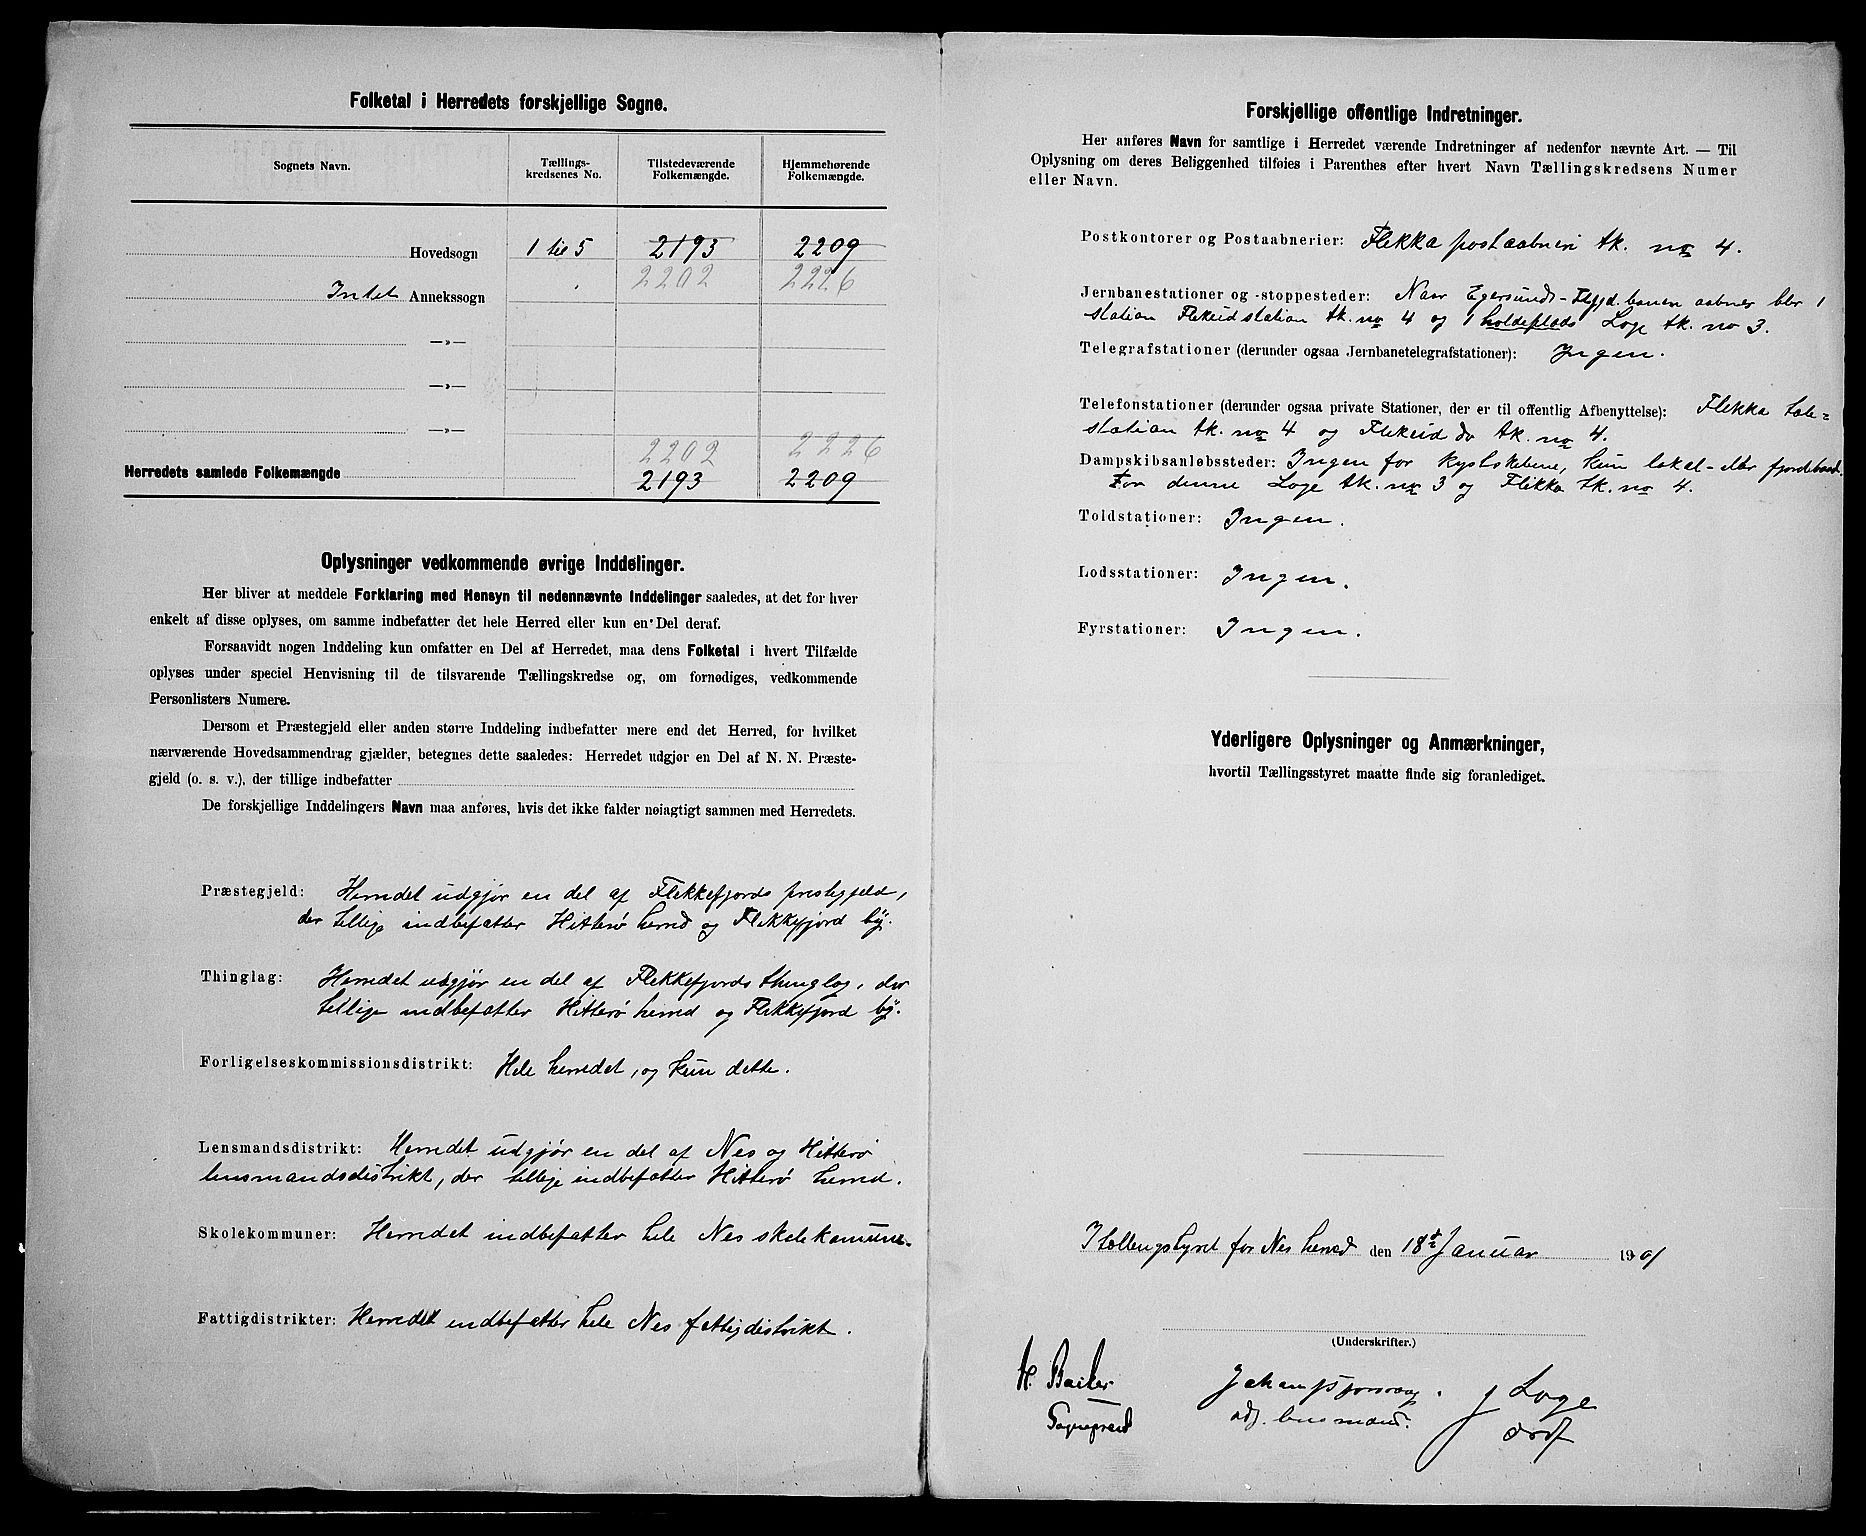 Folketal i Herredets forskjellige Sogne.
Sognets Navn.
Tællings-
kredsenes No.
Tilstedeværende
Folkemængde.
Hjemmehørende
Folkemængde.
Hovedsogn 1 til 5 2193 2209
2202 2226
Intet Annekssogn
—»—
—»—
—»—
2202 2226
Herredets samlede Folkemængde 2193 2209
Oplysninger vedkommende øvrige Inddelinger.
Her bliver at meddele Forklaring med Hensyn til nedennævnte Inddelinger saaledes, at det for hver
enkelt af disse oplyses, om samme indbefatter det hele Herred eller kun en Del deraf.
Forsaavidt nogen Inddeling kun omfatter en Del af Herredet, maa dens Folketal i hvert Tilfælde
oplyses under speciel Henvisning til de tilsvarende Tællingskredse og, om fornødiges, vedkommende
Personlisters Numere.
Dersom et Præstegjeld eller anden større Inddeling indbefatter mere end det Herred, for hvilket
nærværende Hovedsammendrag gjælder, betegnes dette saaledes: Herredet udgjør en Del af N. N. Præste-
gjeld (o. s. v.), der tillige indbefatter
De forskjellige Inddelingers Navn maa anføres, hvis det ikke falder nøiagtigt sammen med Herredets.
Præstegjeld: Herredet udgjør en del af Flekkefjords prestegjeld,
der tillige indbefatter Hitterø herred og Flekkefjord by.
Thinglag: Herredet udgjør en del af Flekkefjords thinglag, der
tillige indbefatter Hitterø herred og Flekkefjord by.
Forligelseskommissionsdistrikt: Hele herredet, og kun dette.
Lensmandsdistrikt: Herredet udgjør en del af Nes og Hitterø
lensmandsdistrikt, der tillige indbefatter Hitterø herred.
Skolekommuner: Herredet indbefatter hele Nes skolekomune.
Fattigdistrikter: Herredet indbefatter hele Nes fattigdistrikt.
Forskjellige offentlige Indretninger.
Her anføres Navn for samtlige i Herredet værende Indretninger af nedenfor nævnte Art. — Til
Oplysning om deres Beliggenhed tilføies i Parenthes efter hvert Navn Tællingskredsens Numer
eller Navn.
Postkontorer og Postaabnerier: Flikka postaabneri tk. no 4.
Jernbanestationer og -stoppesteder: Naar Egersunds-Flfjd. banen aabner blir 1
station Flikeid station tk. no 4 og 1 holdeplads Loge tk. no 3.
Telegrafstationer (derunder ogsaa Jernbanetelegrafstationer): Ingen.
Telefonstationer (derunder ogsaa private Stationer, der er til offentlig Afbenyttelse): Flikka tele-
station tk. no 4 og Flikeid do tk. no 4.
Dampskibsanløbssteder: Ingen for kystskibene, kun lokal- eller fjordbaad.
For denne Loge tk. no 3 og Flikka tk. no 4.
Toldstationer: Ingen.
Lodsstationer: Ingen.
Fyrstationer: Ingen.
Yderligere Oplysninger og Anmærkninger,
hvortil Tællingsstyret maatte finde sig foranlediget.
I tællingstyret for Nes herred den 18de Januar 1901
(Underskrifter.)
H.
Sogneprest
adj. lensmand.
J Loge
ordf